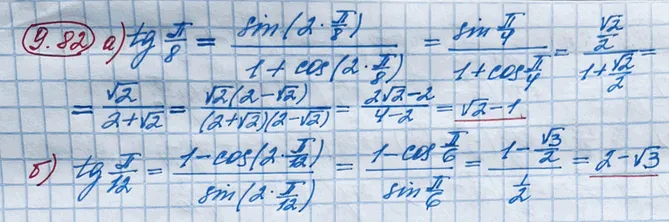 9.82 а) tg π/8 = sin(2·π/8)/(1+cos(2·π/8)) = sin π/4/(1+cos π/4) = (√2/2)/(1+√2/2) =
= √2/(2+√2) = √2(2-√2)/((2+√2)(2-√2)) = (2√2-2)/(4-2) = √2-1
б) tg π/12 = (1-cos(2·π/12))/sin(2·π/12) = (1-cos π/6)/sin π/6 = (1-√3/2)/(1/2) = 2-√3